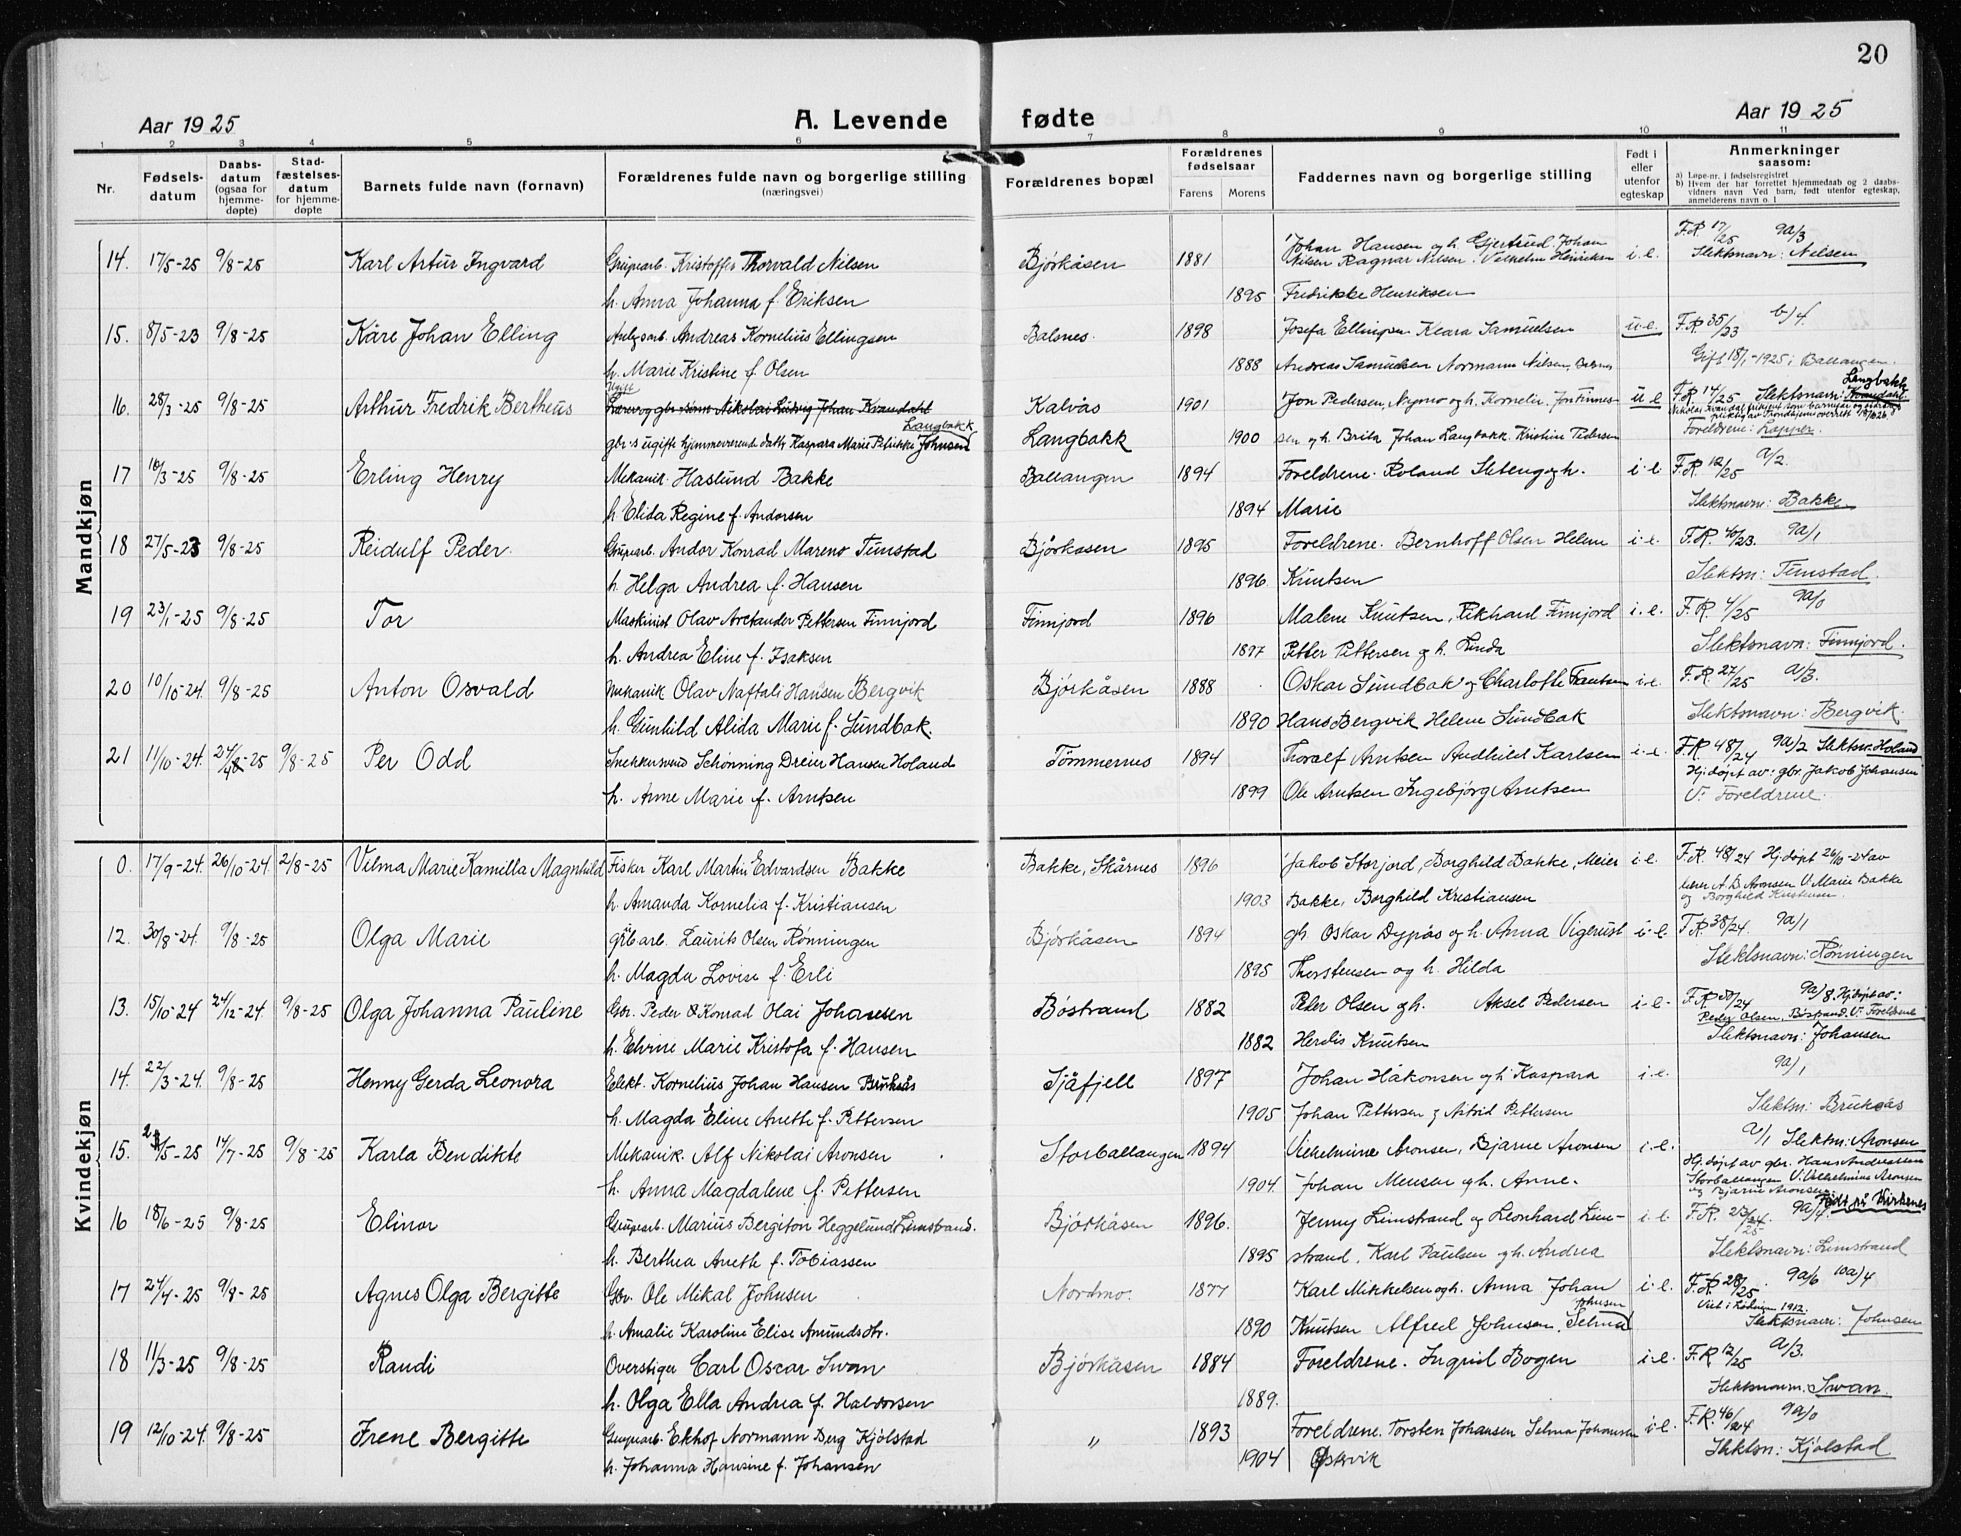 20
Aar 1925
A. Levende fødte
Aar 1925
1 2 3 4 5 6 7 8 9 10 11
Nr. Fødsels-datum Daabs-datum (ogsaa for hjemme-døpte) Stad-fæstelses-datum for hjemme-døpte Barnets fulde navn (fornavn) Forældrenes fulde navn og borgerlige stilling (næringsvei) Forældrenes bopæl Forældrenes fødselsaar Farens Morens Faddernes navn og borgerlige stilling Født i eller utenfor egteskap Anmerkninger saasom:
a) Løpe-nr. i fødselsregistret
b) Hvem der har forrettet hjemmedaab og 2 daabs-vidners navn Ved barn, født utenfor egteskap, anmelderens navn o. l
Mandkjøn
F.R 17/25 9a/3
14. 17/5-25 9/8-25 Karl Artur Ingvard Grupearb. Kristoffer Thorvald Nilsen Bjørkåsen 1881 Johan Hansen og h. Gjertrud. Johan Nilsen Ragnar Nilsen. Vilhelm Henriksen i.e. Slektsnavn: Nilsen
h. Anna Johanna f. Eriksen 1895 Fredrikke Henriksen
15. 8/5-23 9/8-25 Kåre Johan Elling Anlgsarb. Andreas Kornelius Ellingsen Balsnes. 1898 Josefa Ellingsen Klara Samuelsen u.e. F.R. 35/23 b)4.
h. Marie Kristine f. Olsen 1888 Andreas Samuelsen Normann Nilsen, Balsnes Gift 18/1-1925 i Ballangen.
16. 28/3-25 9/8-25 Arthur Fredrik Bertheus Ugift Nikolai Ludvig Johan Kvandahl Kalvås 1901 Jon Pedersen, Nymo og h. Kornelie. Jon Finnes- u.e F.R. 14/25 Slektsnavn: Kvandahl. Langbakk
gbr.s ugifte hjemmeværende datr Kaspara Marie Petrikke Johnsen Langbakk Langbakk 1900 sen og h. Brita Johan Langbakk. Kristine Pedersen Foreldrene: Lapper.
17 10/3-25 9/8-25 Erling Henry Mekanik. Haslund Bakke Ballangen 1894 Foreldrene. Roland Stteng og h. i-e F.R. 12/25 a/2.
h. Elida Regine f. Andorsen 1894 Marie Slektsnavn: Bakke
18 27/5-23 9/8-25 Reidulf Peder. Grupearb. Andor Konrad Mareno Timstad Bjørkåsen 1895 Foreldrene. Bernhoff Olsen Helene i-e. F.R. 40/23. 9a/1
h. Helga Andrea f. Hansen 1896. Knutsen Slektsn: Timstad.
19 23/1-25 9/8-25 Tor Maskinist Olav Arctander Pettersen Finnjord Finnjord 1896 Malene Knutsen, Rikhard Finnjord i.e. F.R. 4/25 9a/0
h. Andrea Eline f. Isaksen 1897 Petter Pettersen og h. Linda Slektsnavn: Finnjord.
20 10/10-24. 9/8-25 Anton Osvald Mekanik Olav Naftali Hansen Bergvik Bjørkåsen 1888 Oskar Sundbak og Charlotte Frantsen i-e. F.R. 27/25 a/3.
h. Gunhild Alida Marie f. Sundbak. 1890 Hans Bergvik Helene Sundbak Slektsnavn: Bergvik.
21 11/10-24. 24/10-25 9/8-25 Per Odd Snekkersvend Schønning Dreier Hansen Holand Tømmernes 1894 Thoralf Arntsen Andhild Karlsen i-e. F.R. 48/24 9a/2 Slektsn: Holand
h. Anne Marie f. Arntsen 1899 Ole Arntsen Ingebjørg Arntsen Hj.døpt av: gbr. Jakob Johansen V: Foreldrene.
Kvindekjøn
0. 17/9-24. 26/10-24. 2/8-25 Vilma Marie Kamilla Magnhild Fisker Karl Martin Edvardsen Bakke Bakke, Skårnes 1896 Jakob Storjord, Borghild Bakke, Meier i-e. F.R. 48/24 Hj.døpt 26/10-24 av
h. Amanda Kornelia f. Kristiansen 1903 Bakke, Borghild Kristiansen lærer A. B. Aronsen V. Marie Bakke og Borghild Kristiansen.
12. 30/8-24. 9/8-25 Olga Marie grb arb. Laurits Olsen Rønningen Bjørkåsen 1894 gh. Oskar Dypås og h. Anna Vigerust i-e F.R. 38/24. 9a/1
h. Magda Lovise f. Erli 1895 Thorstensen og h. Hilda Slektsnavn: Rønningen
13. 15/10-24 24/12-24. 9/8-25 Olga Johanna Pauline Gbr. Peder Konrad Olai Johansen Bøstrand 1882 Peder Olsen og h. Aksel Pedersen i-e- F.R. 50/24 9a/8. Hj.døpt av: Peder Olsen, Bøstrand. V: Foreldrene
h. Elvine Marie Kristofa f. Hansen 1882 Herdis Knutsen Slektsnavn: Johansen
14. 22/3-24. 9/8-25 Henny Gerda Leonora Elekt. Kornelius Johan Hansen Bruksås Sjåfjell 1897 Johan Håkonsen og h. Kaspara i-e. 9a/1
h. Magda Eline Anette f. Pettersen 1905 Johan Pettersen og Astrid Pettersen Slektsn: Bruksås
15. /5-25 14/7-25 9/8-25 Karla Bendikte Mekanik. Alf Nikolai Aronsen Storballangen 1894 Vilhelmine Aronsen, Bjarne Aronsen i-e- a/1 Slektsn: Aronsen
h. Anna Magdalene f. Pettersen 1904. Johan Mensen og h. Anne. Hj.døpt av gbr. Hans Andreassen Storballangen V. Vilhelmine Aronsen og Bjarne Aronsen
16 18/6-25 9/8-25. Elinor Grupearb. Marius Bergiton Heggelund Limstrand. Bjørkåsen 1896. Jenny Limstrand og Leonhard Lim- i-e F.R. 23/25 9a/4. Født på Virknes
h. Berthea Aneth f. Tobiassen 1895 strand, Karl Paulsen og h. Andrea Slektsnavn: Limstrand
17 24/4-25 9/8-25 Agnes Olga Bergitte Gbr. Ole Mikal Johnsen Nordmo. 1877 Karl Mikkelsen og h. Anna Johan i-e. F.R. 28/25. 9a/6 10a/4
h. Amalie Karoline Elise Amundsdtr. 1890 Knutsen Alfred Johnsen. Selma Johnsen Viet i Lødingen 1912. Slektsnavn: Johnsen
18 11/3-25 9/8-25 Randi Overstiger Carl Oscar Swan Bjørkåsen 1884 Foreldrene. Ingrid Bogen i-e. F.R 12/25 a/3.
h. Olga Ella Andrea f. Haldorsen 1889. Slektsnavn: Swan.
19 12/10-24. 9/8-25 Irene Bergitte Grupearb. Ekhof Normann Berg Kjølstad " 1893 Foreldrene. Torsten Johansen Selma Johansen i-e. F.R. 46/24 9a/0
h. Johanna Hansine f. Johansen 1904 Ørsvik Slektsn: Kjølstad